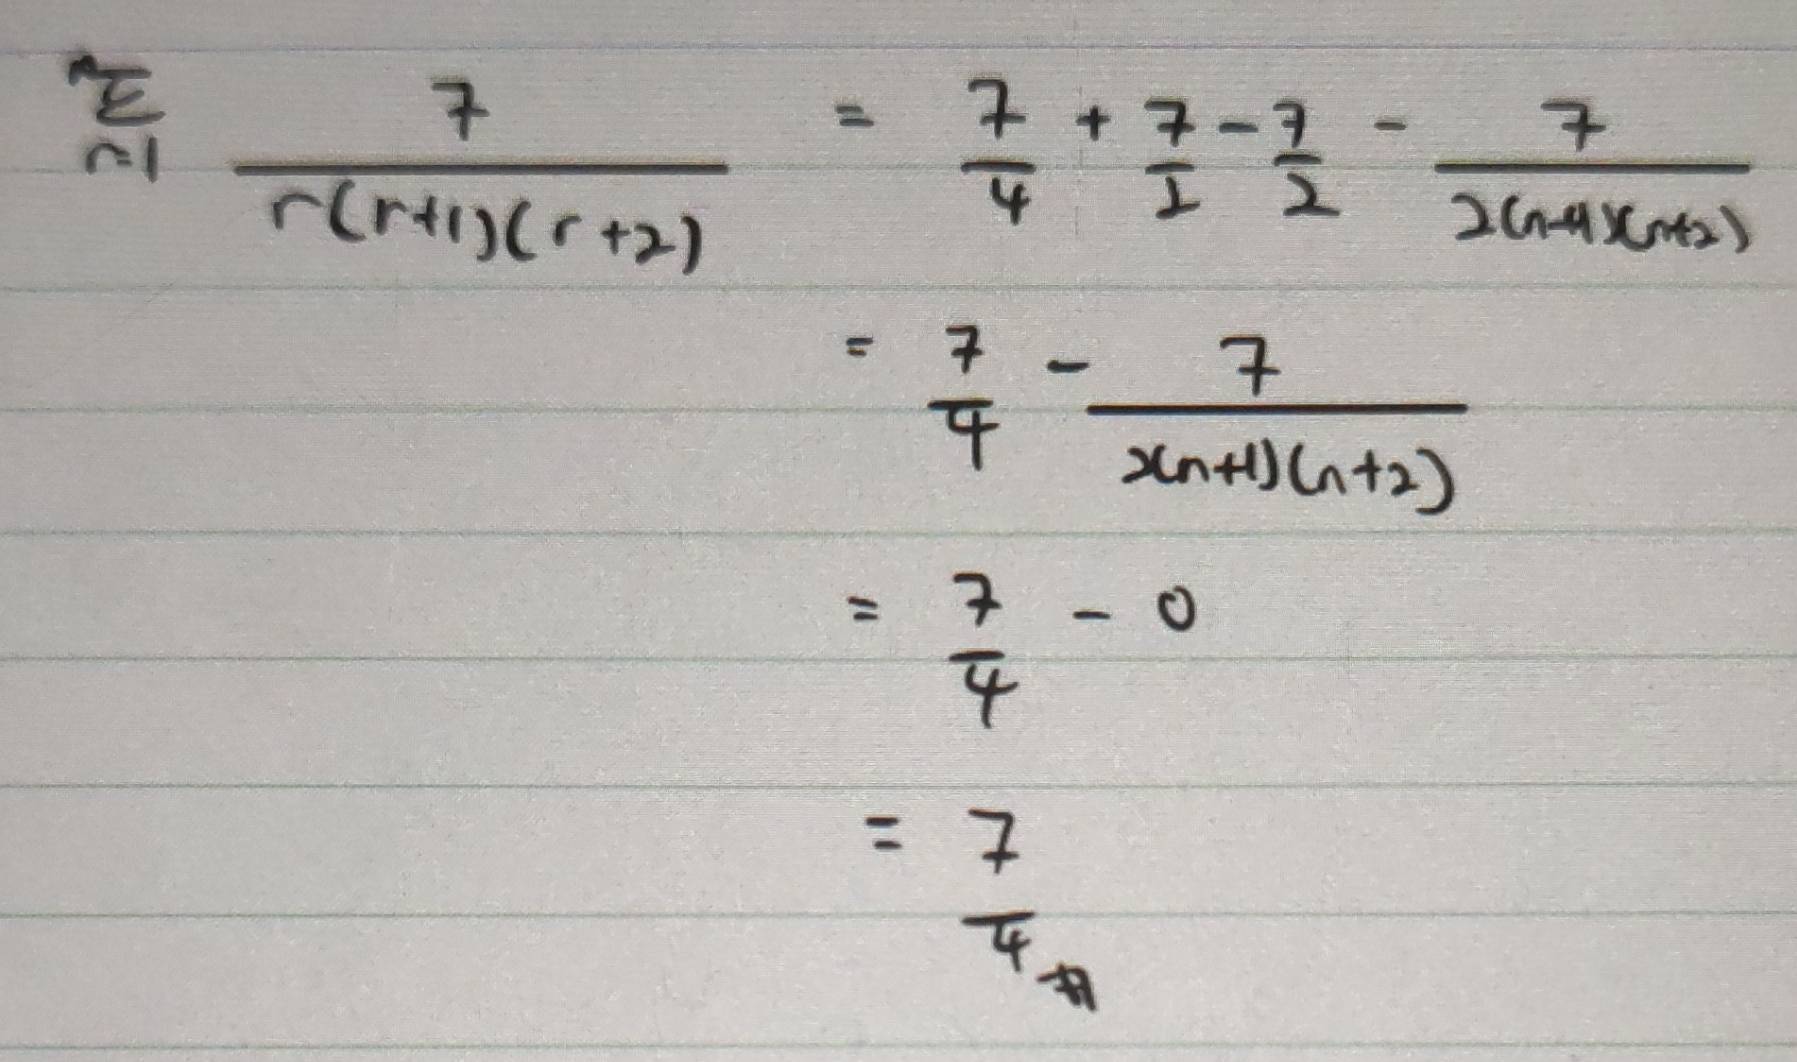 n Σ r=1 7/(r(r+1)(r+2)) = 7/4 + 7/2 - 7/2 - 7/(2(n+1)(n+2))
= 7/4 - 7/(2(n+1)(n+2))
= 7/4 - 0
= 7/4 #